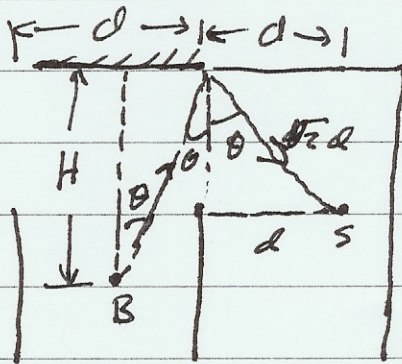 d d
H
θ θ θ
√2 d
d S
B